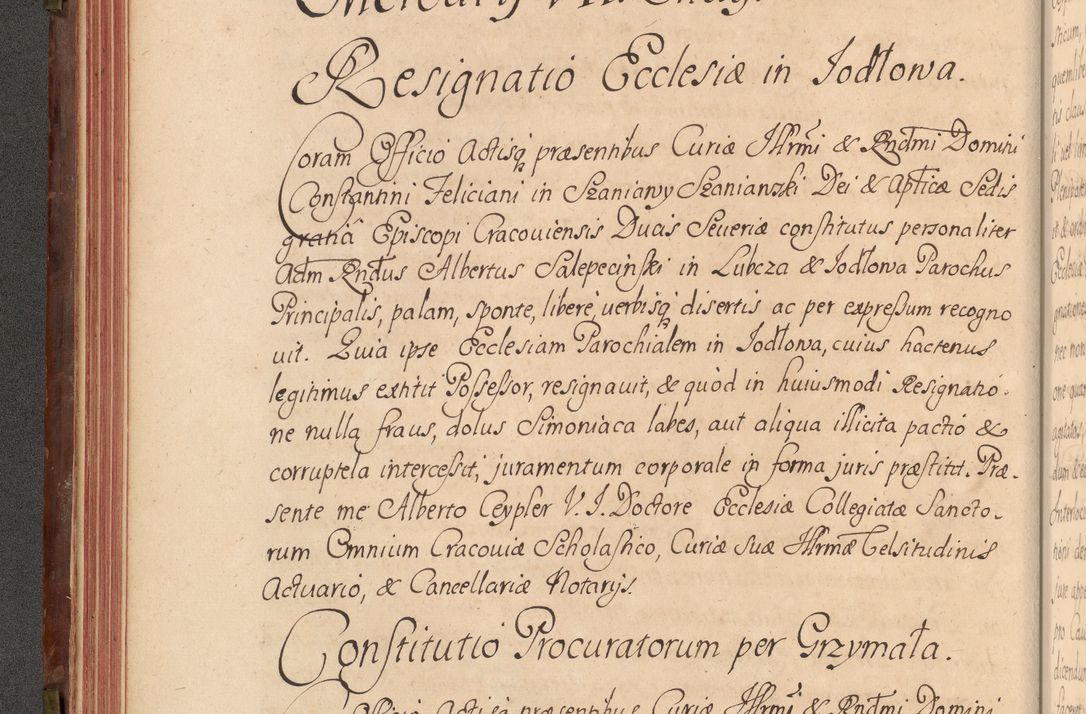 Resignatio Ecclesiæ in Jodłowa.
Coram Officio Actisq præsentibus Curiæ Illrmi & Rndmi Domini
Constantini Feliciani in Szaniawy Szaniawski Dei & Apticæ Sedis
gratiâ Episcopi Cracoviensis Ducis Severiæ constitutus personaliter
Adm Rndus Albertus Salepeciński in Lubcza & Jodłowa Parochus
Principalis, palam, sponte, libere, verbisq disertis ac per expreſsum recogno
vit. Quia ipse Ecclesiam Parochialem in Jodłowa, cuius hactenus
legitimus extitit Poſseſsor, resignavit, & quòd in huiusmodi Resignatio-
ne nulla fraus, dolus Simoniaca labes, aut aliqua illicita pactio &
corruptela interceſsit, juramentum corporale in forma juris præstitit. Præ-
sente me Alberto Ceypler V. J. Doctore Ecclesiæ Collegiatæ Sancto-
rum Omnium Cracoviæ Scholastico, Curiæ suæ Illrmæ Celsitudinis
Actuario, & Cancellariæ Notarijs.
Constitutio Procuratorum per Grzymała.
Officio Actisq præsentibus Curiæ Illrmi & Rndmi Domini